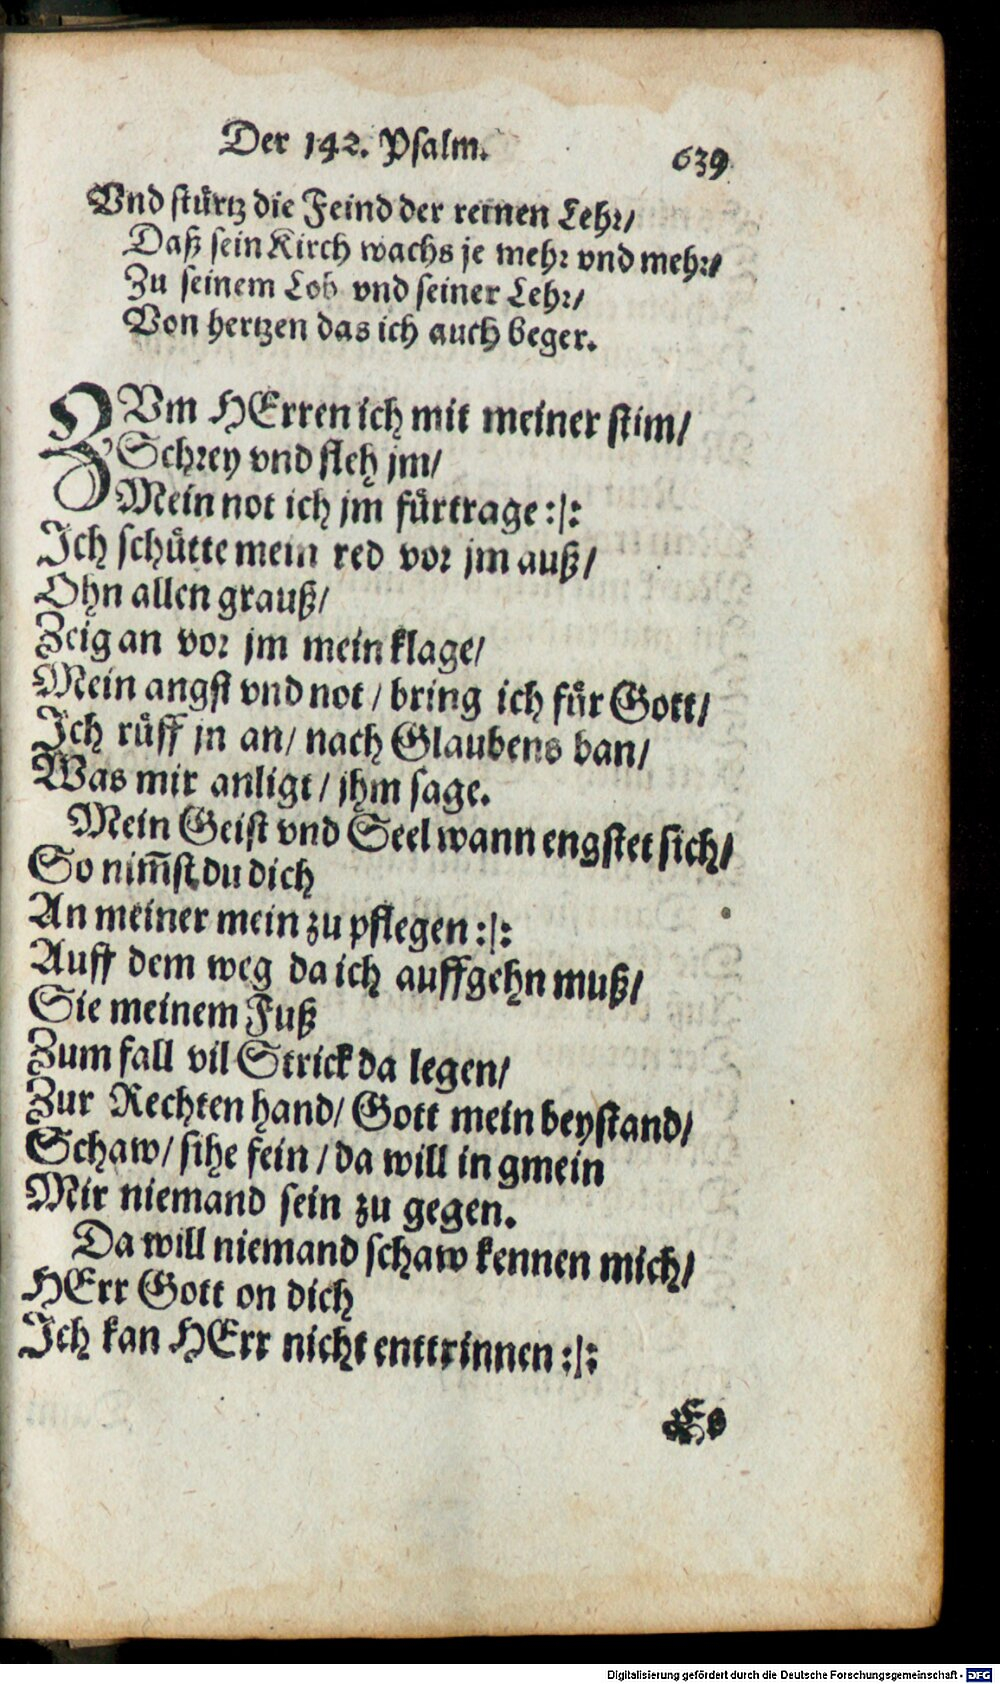 Der 142. Psalm.
639
Vnd stürtz die Feind der reinen Lehr/
Daß sein Kirch wachs je mehr vnd mehr/
Zu seinem Lob vnd seiner Lehr/
Von hertzen das ich auch beger.
ZVm HErren ich mit meiner stim/
Schrey vnd fleh jm/
Mein not ich jm fürtrage :/:
Ich schütte mein red vor jm auß/
Ohn allen grauß/
Zeig an vor jm mein klage/
Mein angst vnd not / bring ich für Gott/
Ich rüff jn an/ nach Glaubens ban/
Was mir anligt / jhm sage.
Mein Geist vnd Seel wann engstet sich/
So nim̄st du dich
An meiner mein zu pflegen :/:
Auff dem weg da ich auffgehn muß/
Sie meinem Fuß
Zum fall vil Strick da legen/
Zur Rechten hand/ Gott mein beystand/
Schaw/ sihe fein / da will in gmein
Mir niemand sein zu gegen.
Da will niemand schaw kennen mich/
HErr Gott on dich
Ich kan HErr nicht enttrinnen :/:
Es
Digitalisierung gefördert durch die Deutsche Forschungsgemeinschaft - DFG